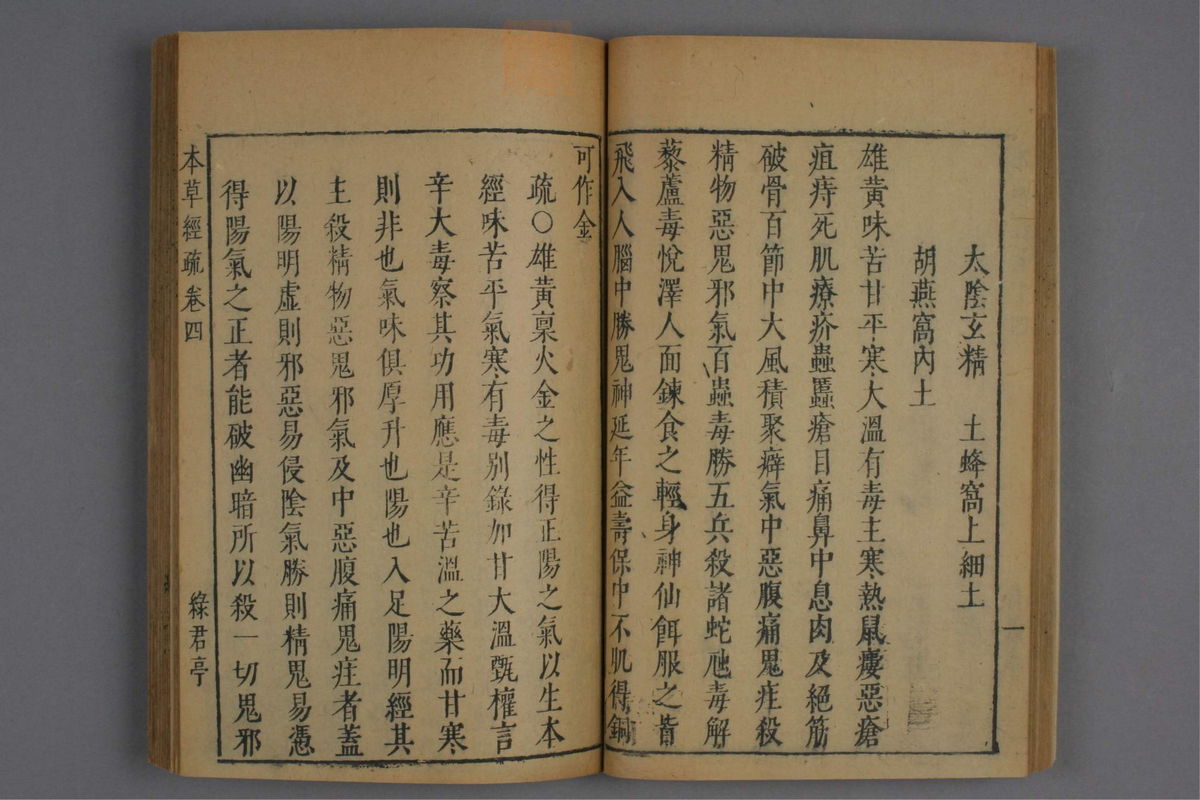 太陰玄精　土蜂窩上細土
胡燕窩內土
雄黃味苦甘平寒大溫有毒主寒熱鼠瘻惡瘡
疽痔死肌療疥蟲䘌瘡目痛鼻中息肉及絕筋
破骨百節中大風積聚癖氣中惡腹痛鬼疰殺
精物惡鬼邪氣百蟲毒勝五兵殺諸蛇虺毒解
藜蘆毒悅澤人面鍊食之輕身神仙餌服之皆
飛入人腦中勝鬼神延年益壽保中不肌得銅
可作金
疏○雄黃稟火金之性得正陽之氣以生本
經味苦平氣寒有毒別錄加甘大溫甄權言
辛大毒察其功用應是辛苦溫之藥而甘寒
則非也氣味俱厚升也陽也入足陽明經其
主殺精物惡鬼邪氣及中惡腹痛鬼疰者蓋
以陽明虛則邪惡易侵陰氣勝則精鬼易憑
得陽氣之正者能破幽暗所以殺一切鬼邪
本草經疏 卷四
綠君亭
一